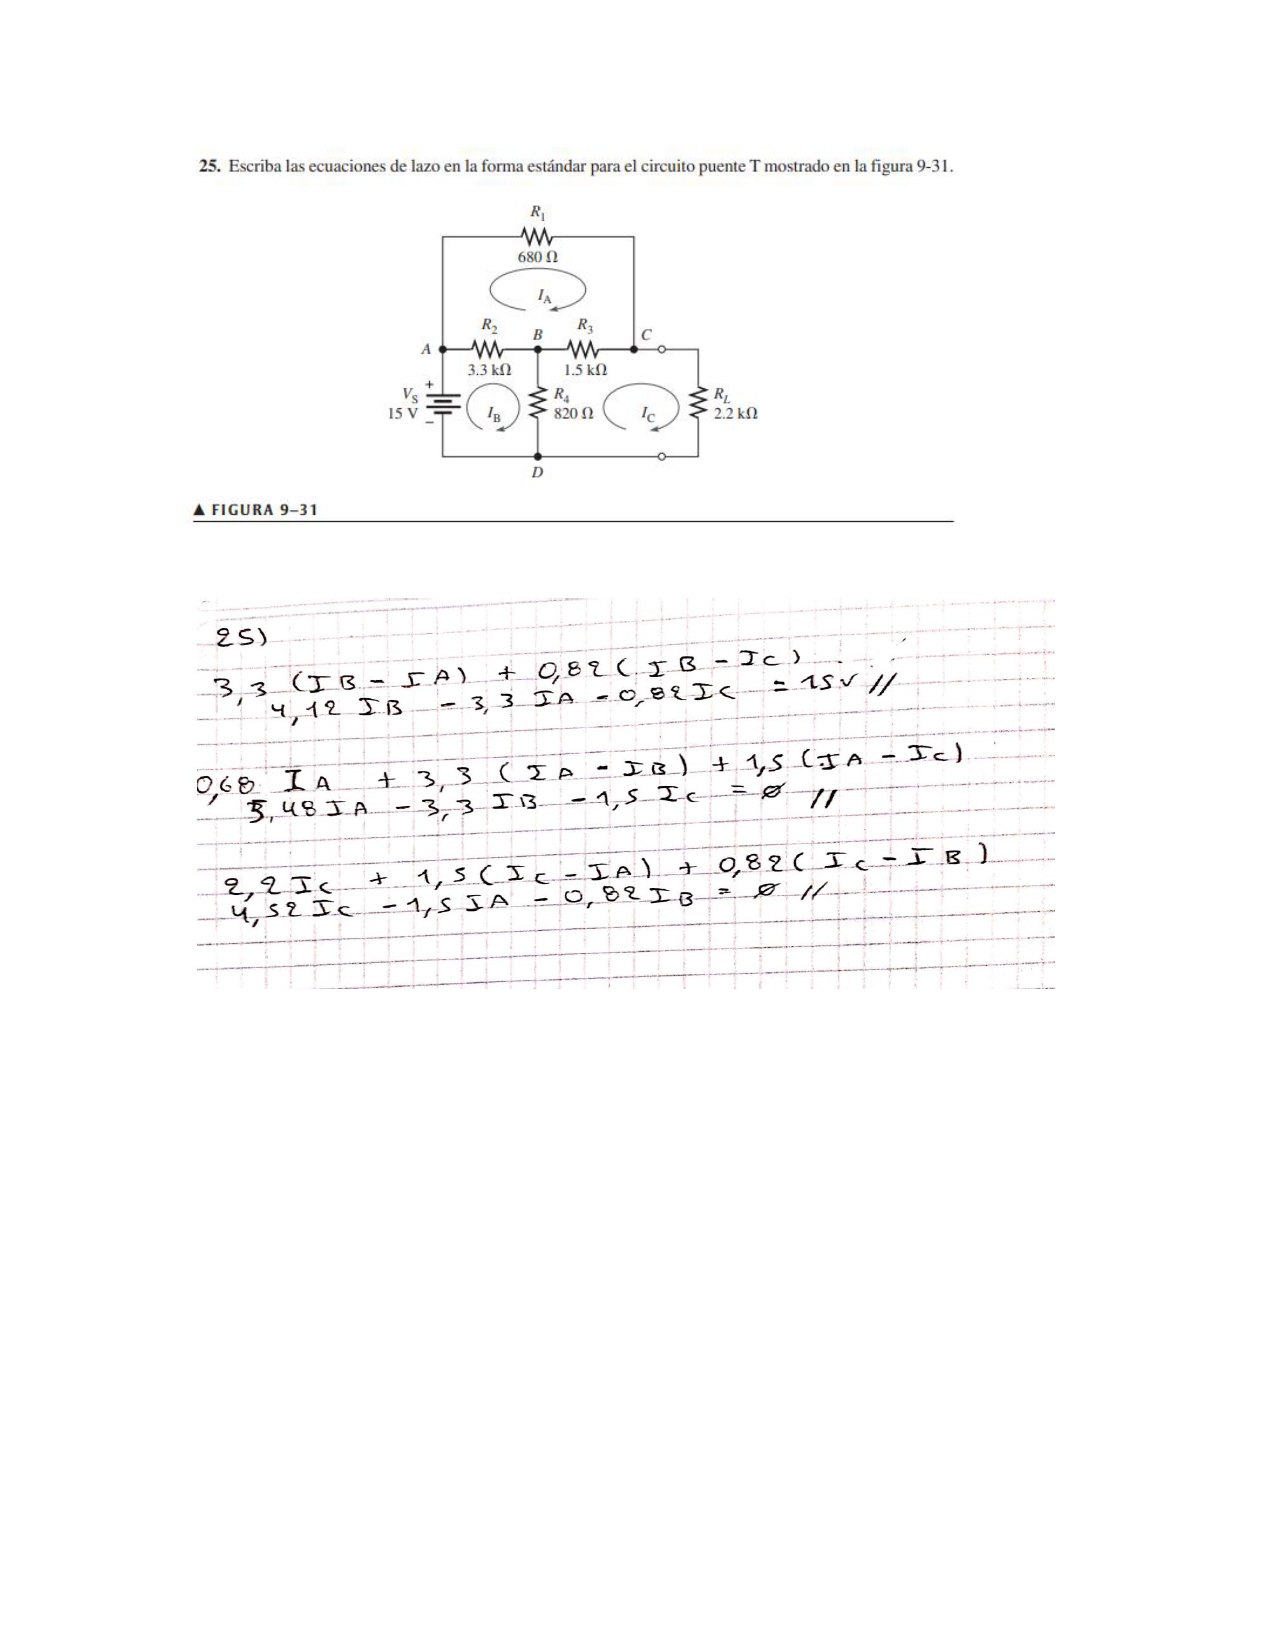 25. Escriba las ecuaciones de lazo en la forma estándar para el circuito puente T mostrado en la figura 9-31.
R1
680 Ω
IA
R2
B
R3
C
A
3.3 kΩ
1.5 kΩ
+
VS
15 V
−
IB
R4
820 Ω
IC
RL
2.2 kΩ
D
▲ FIGURA 9–31
25)
3,3 (IB - IA) + 0,82 (IB - Ic)
4,12 IB - 3,3 IA - 0,82 Ic = 15V //
0,68 IA + 3,3 (IA - IB) + 1,5 (IA - Ic)
5,48 IA - 3,3 IB - 1,5 Ic = ø //
2,2 Ic + 1,5 (Ic - IA) + 0,82 (Ic - IB)
4,52 Ic - 1,5 IA - 0,82 IB = ø //